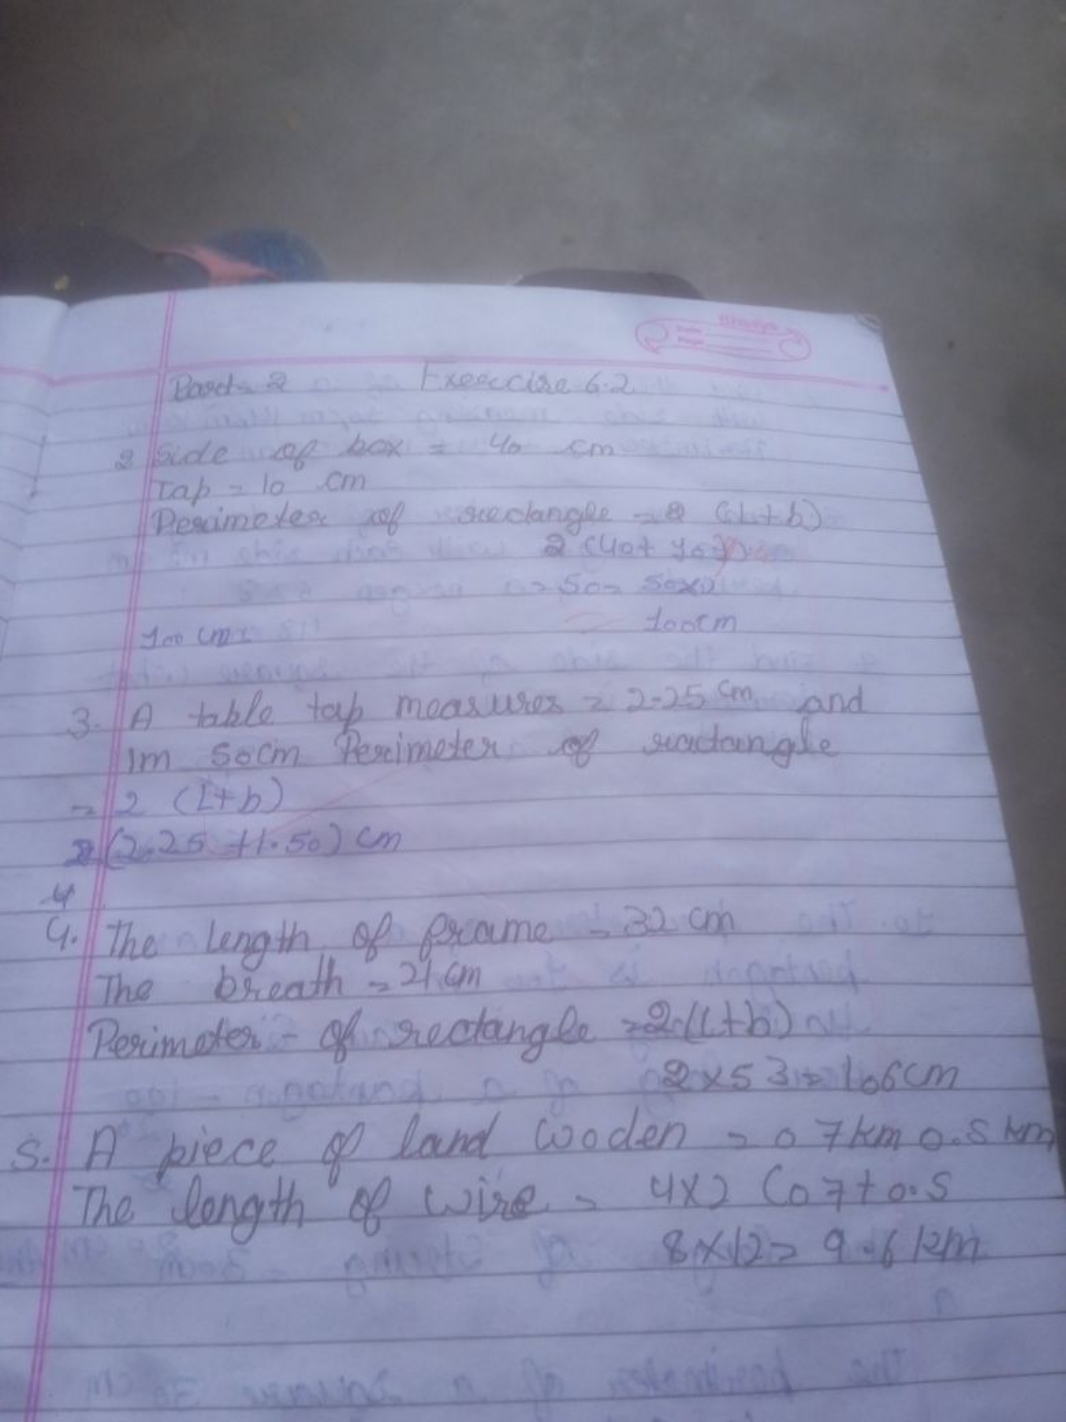 Part 2 Exercise 6.2
2 Side of box = 40 cm
Tap = 10 cm
Perimeter of rectangle = 2 (L+b)
2 (40+10)
= 50 = 50x2
100 cm 100cm
3. A table tap measures = 2.25 cm and
1m 50cm Perimeter of ractangle
= 2 (l+b)
2 (2.25 +1.50) cm
4
4. The length of frame = 32 cm
The breath = 21 cm
Perimeter - of rectangle = 2 (l+b)
2x53 = 106cm
5. A piece of land wooden = 0 7km 0.5 km
The length of wire = 4x2 (0 7+0.5
8x12 = 9.6 km